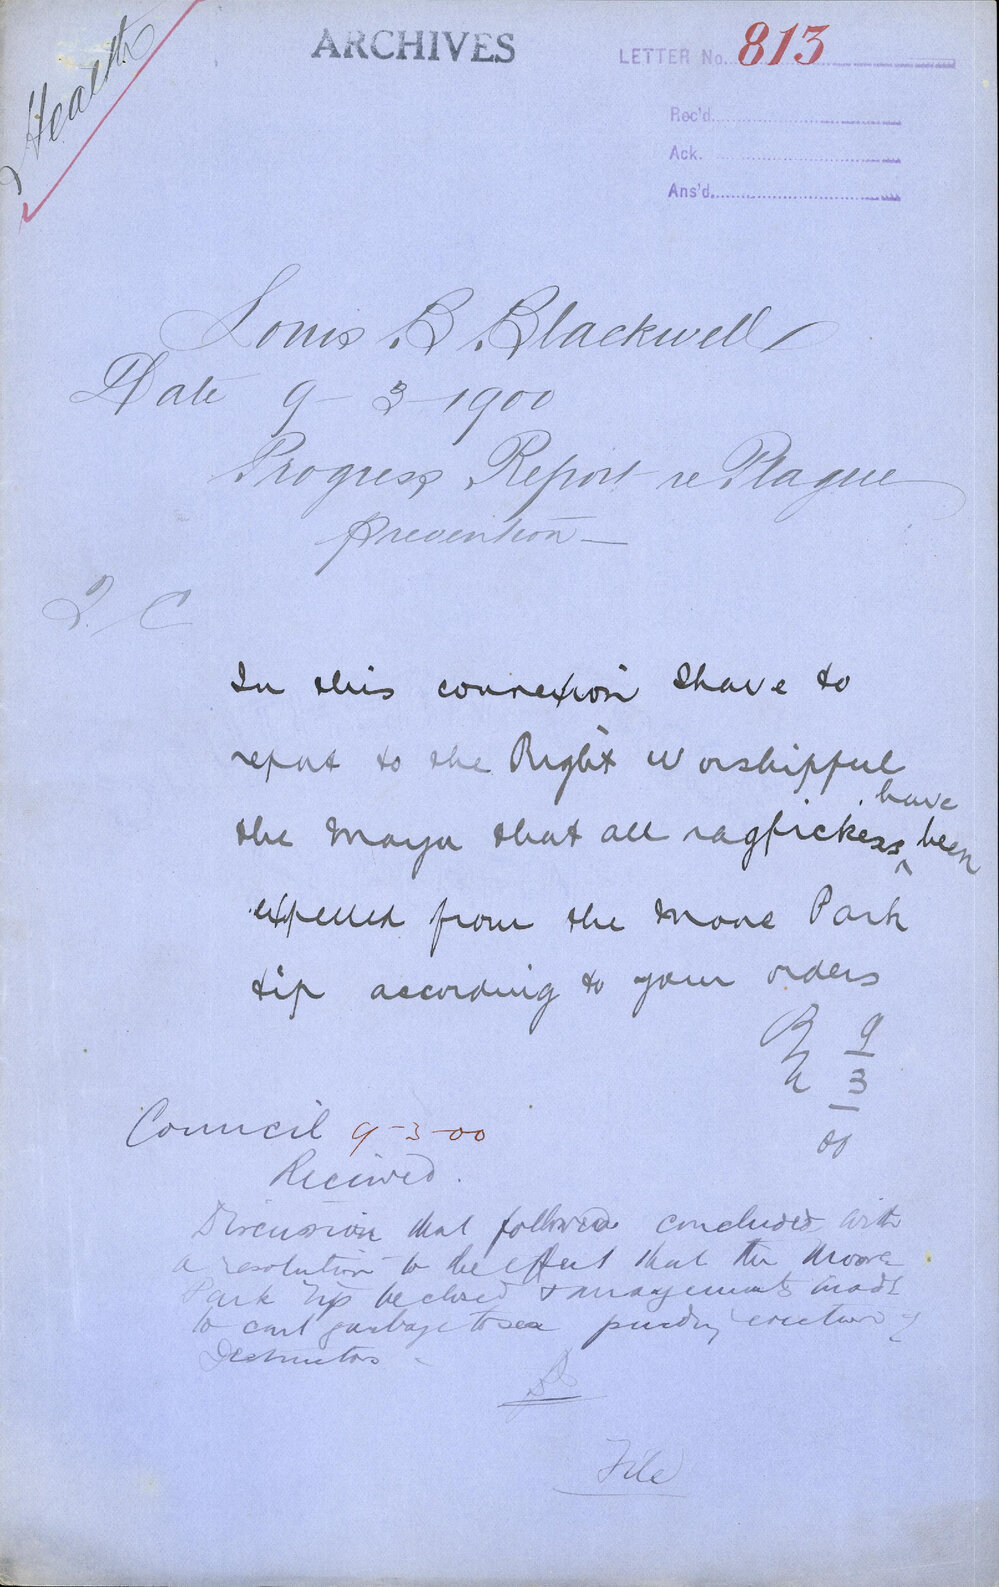 Health
ARCHIVES
LETTER No. 813
Rec'd.
Ack.
Ans'd.
Louis B Blackwell
Date 9-3-1900
Progress Report re Plague
prevention —
T. C
In this connexion I have to
report to the Right Worshipful
have
the Mayor that all ragpickers ^ been
expelled from the Moore Park
tip according to your orders
9
3
00
Council 9-3-00
Received.
Discussion that followed concluded with
a resolution to the effect that the Moore
Park Tip be closed & arrangements made
to cart garbage to sea pending erection of
Destructors —
File